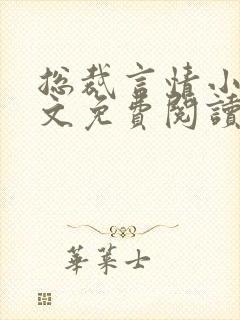 总裁言情小
文免費閱讀
華菜士